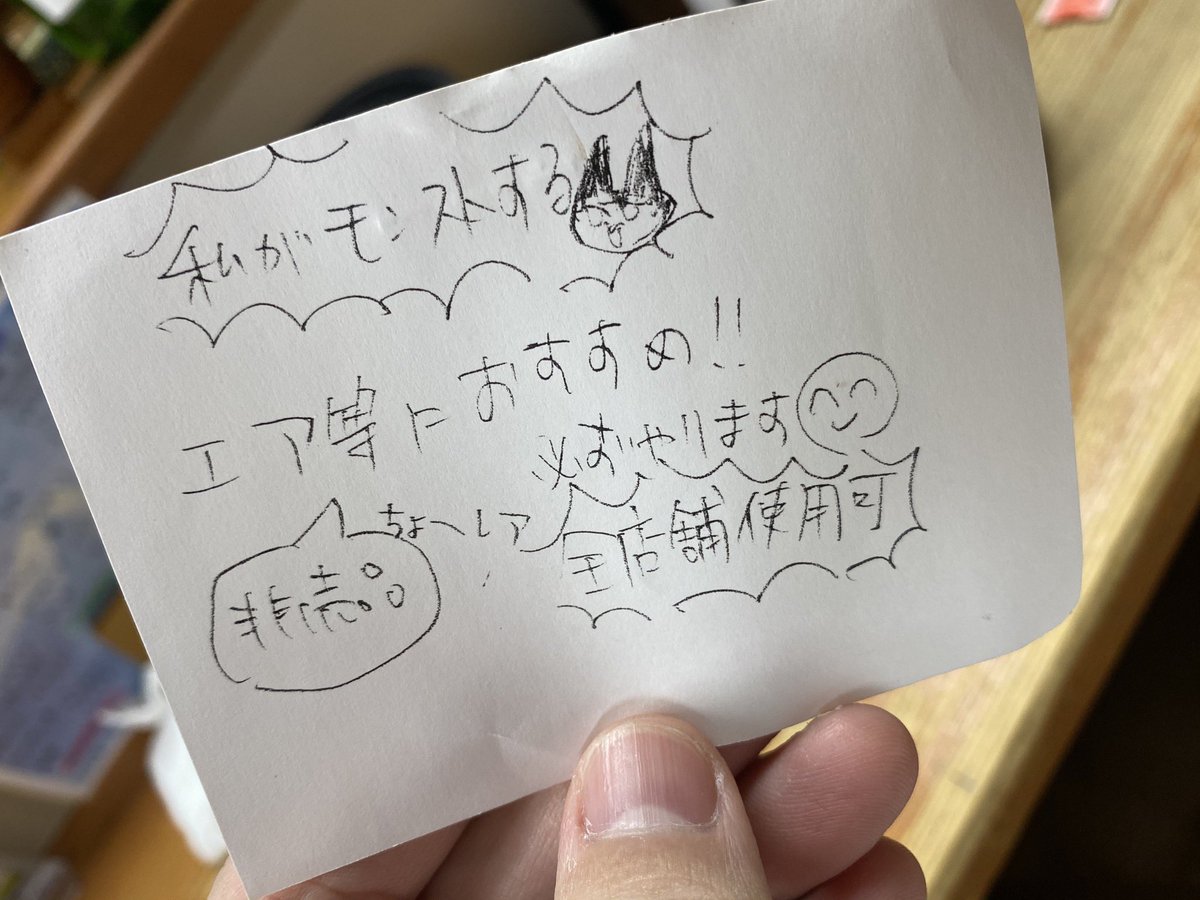 私がモンストする
エア等におすすめ!!
必ずやります
ちょーレア
全店舗使用可
非売品